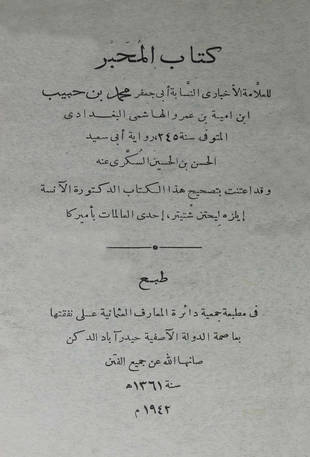 كتاب المُحَبَّر
للعلامة الأخبارى النسابة أبى جعفر محمد بن حبيب
ابن امية بن عمرو الهاشمى البغدادى
المتوفى سنة ٢٤٥، رواية أبى سعيد
الحسن بن الحسين السكرى عنه
وقد اعتنت بتصحيح هذا الكتاب الدكتورة الآنسة
إيلزه ليختن شتيتر، إحدى العالمات بأميركا
طبع
فى مطبعة جمعية دائرة المعارف العثمانية على نفقتها
بعاصمة الدولة الآصفية حيدرآباد الدكن
صانها الله عن جميع الفتن
سنة ١٣٦١ھ
١٩٤٢ م